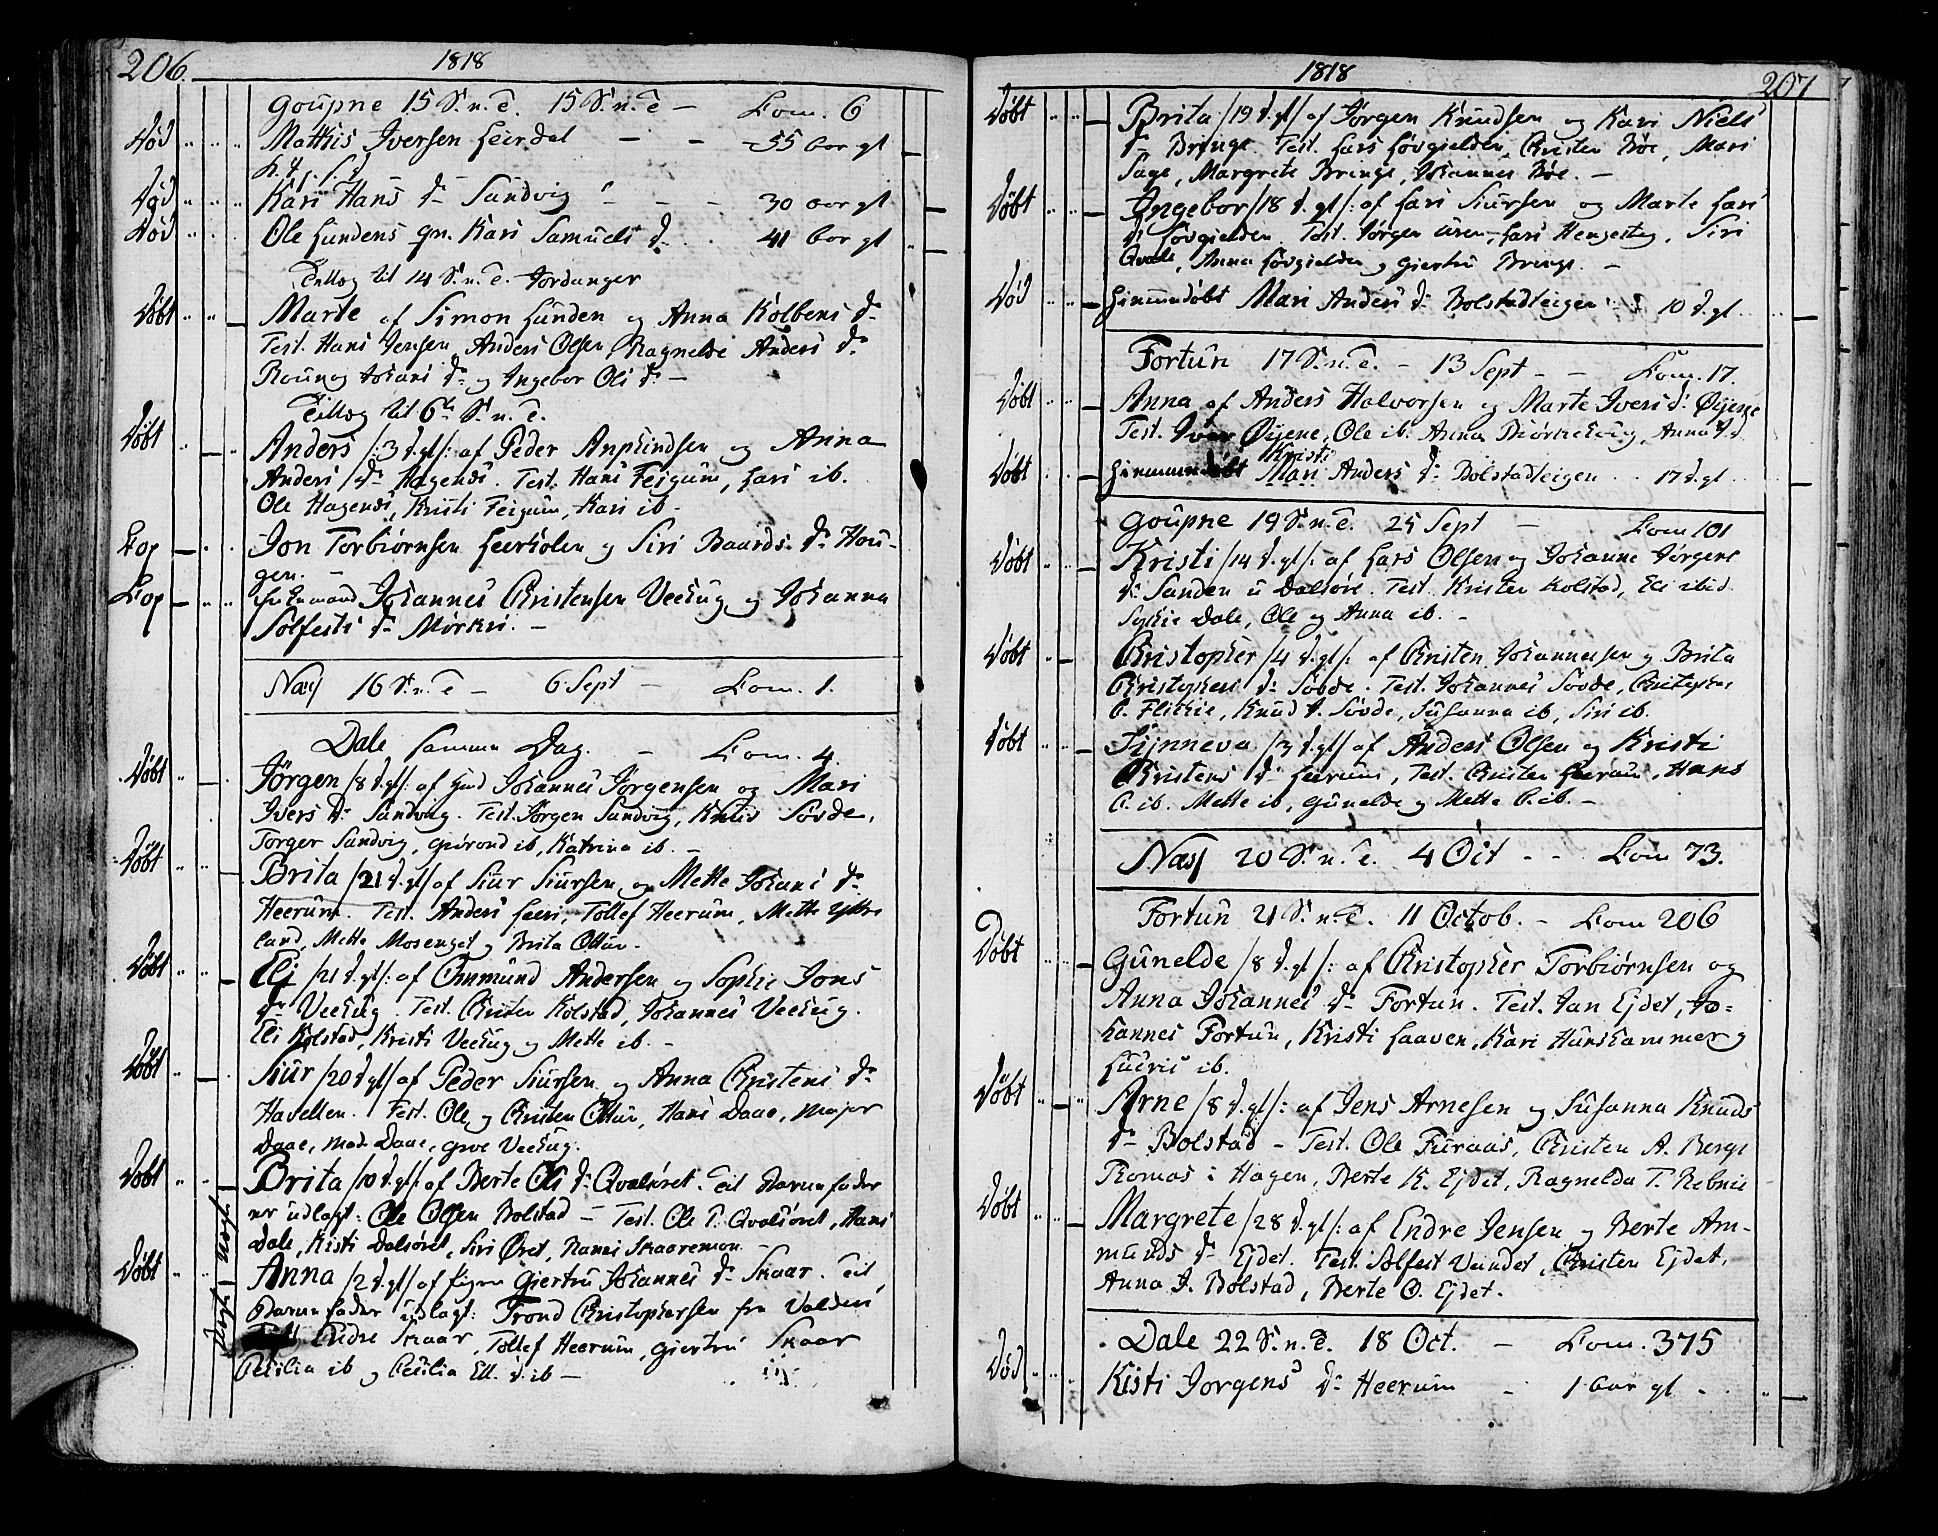 206.
1818
Goupne 15 S. n. T. 15 S. n. T - Com. 6
Død Mathis Iversen Leirdal - - 55 aar gl
Død Kari Hans D. Sandvig - - 30 aar gl
Død Ole Lundens qn. Kari Samuels D. 41 aar gl
Tillæg til 14 S. n. T. Jordanger
Døbt Marte af Simon Lunden og Anna Kolbens D.
Test. Hans Jensen Anders Olsen, Ragnelde Anders D.
Johans D. og Ingebor Ols D. -
Tillæg til 6te S. n. T.
Døbt Anders /:3 D. gl/: af Peder Amundsen og Anna
Anders D. Hagenes. Test. Hans Feigum, Lars ib.
Ole Hagenes, Kristi Feigum, Kari ib -
Cop Jon Torbiørnsen Leerholen og Siri Baards D. Hou-
gen. -
Cop Johannes Christensen Veehug og Johanna
Solfests D. Mørkri. -
Næs 16 S. n. T - 6 Sept - Com. 1.
Dale samme Dag. - Com. 4.
Døbt Jørgen /8 D. gl/: af Johannes Jørgensen og Mari
Ivers D. Sandvig. Test. Jørgen Sandvig, Søvde,
Torger Sandvig, ib, Katrina ib. -
Døbt Brita /21 D. gl/ af Siur Siursen og Mette Johans D.
Heerum. Test. Anders Tollef Heerum, Mette
land, Mette Mosenget og Brita Ottun.
Døbt Eli /21 D. gl/: af Ommund Andersen og Sophie Jons
D. Veehug. Test. Christen Kolstad, Johannes Veehug.
Eli Kolstad, Kristi Veehug og Mette ib. -
Døbt Siur /20 D. gl/ af Peder Siursen og Anna Christens D.
Havellen. Test. Ole og Christen Ottun, Hans Daae, Major
Daae, Mad. Daae, Veehug.
Døbt Brita /10 D. gl/: af Berte Ols D. Qvalsøret. Til Barnefader
er udlagt: Ole Olsen Bolstad - Test. Ole P. Qvalsøret, Hans
Dale, Kisti Dalsøret, Siri Øret, Skaaremon
Døbt Anna /2 D. gl/ af Pigen Giertru Johannes D. Skaar. Til
Barnefader udlagt: Trond Christophersen fra Valders
Endre Skaar, Tollef Heerum, Giertru Skaar
Cecilia ib og Cecilia Ell. D. ib -
1818
207
Døbt Brita /19 D. gl/ af Jørgen Knudsen og Kari Niels
D. Bringe Test. Lars Løvgielden, Christen Bøe, Mari
Sage, Margrete Bringe, Johannes Bøe. -
Døbt Ingebor /18 D. gl/: af Lars Siursen og Marte Lars
D. Løvgielden. Test. Jørgen Uren, Lars Hengesteg, Siri
Qvale, Anna Løvgielden og Giertru Bringe. -
Død Hiemmedøbt Mari Anders D. Bolstadteigen 10 D. gl
Fortun 17 S. n. T. - 13 Sept - - Com. 17.
Døbt Anna af Anders Halvorsen og Marte Ivers D. Øyene
Test. Iver Øyene, Ole ib. Anna Biørkehoug, Anna I. D.
Kristi
Døbt Hiemmedøbt Mari Anders D. Bolstadteigen 17 D. gl
Goupne 19 S. n. T. 25 Sept - Com 101
Døbt Kristi /14 D. gl/: af Lars Olsen og Johanne Jørgens
D. Sanden u Dalsøre. Test. Kristen Kolstad, Eli ibid
Dale, Ole og Anna ib. -
Døbt Christopher /4 D. gl/: af Christen Johannesen og Brita
Christophers D. Søvde. Test. Johannes Søvde, Christopher
C. Flickie, Knud I. Søvde, Susanna ib, Siri ib.
Døbt Synneva /3 D. gl/ af Anders Olsen og Kristi
Christens D. Leerum, Test. Christen Leerum, Hans
C. ib. Mette ib, Gunelde og Mette C. ib. -
Næs 20 S. n. T. 4 Oct - - Com 73.
Fortun 21 S. n. T. 11 Octob. - Com 206
Døbt Gunelde /8 D. gl/: af Christopher Torbiørnsen og
Anna Johannes D. Fortun. Test. Jan Ejdet, Jo-
hannes Fortun, Kristi Haaven, Kari Hunshammer og
Guris ib.
Døbt Arne /8 D. gl/: af Jens Arnesen og Susanna Knuds
D. Bolstad - Test. Ole Furaas, Christen A. Berge
Thomas i Hagen, Berte K. Ejdet, Ragnelda T.
Døbt Margrete /28 D. gl/: af Endre Jensen og Berte Am-
munds D. Ejdet. Test. Solfest Christen Ejdet,
Anna I. Bolstad, Berte O. Ejdet.
Dale 22 S. n. T. 18 Oct. - Com. 375
Død Kisti Jørgens D. Heerum - 1 aar gl